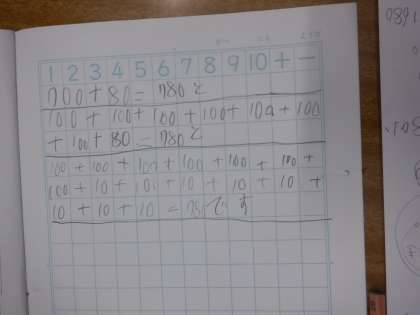 1 2 3 4 5 6 7 8 9 10 + -
700 + 80 = 780 と
100 + 100 + 100 + 100 + 100 + 100
+ 100 + 80 = 780 と
100 + 100 + 100 + 100 + 100 + 100 +
100 + 10 + 10 + 10 + 10 + 10 +
10 + 10 + 10 = 780です